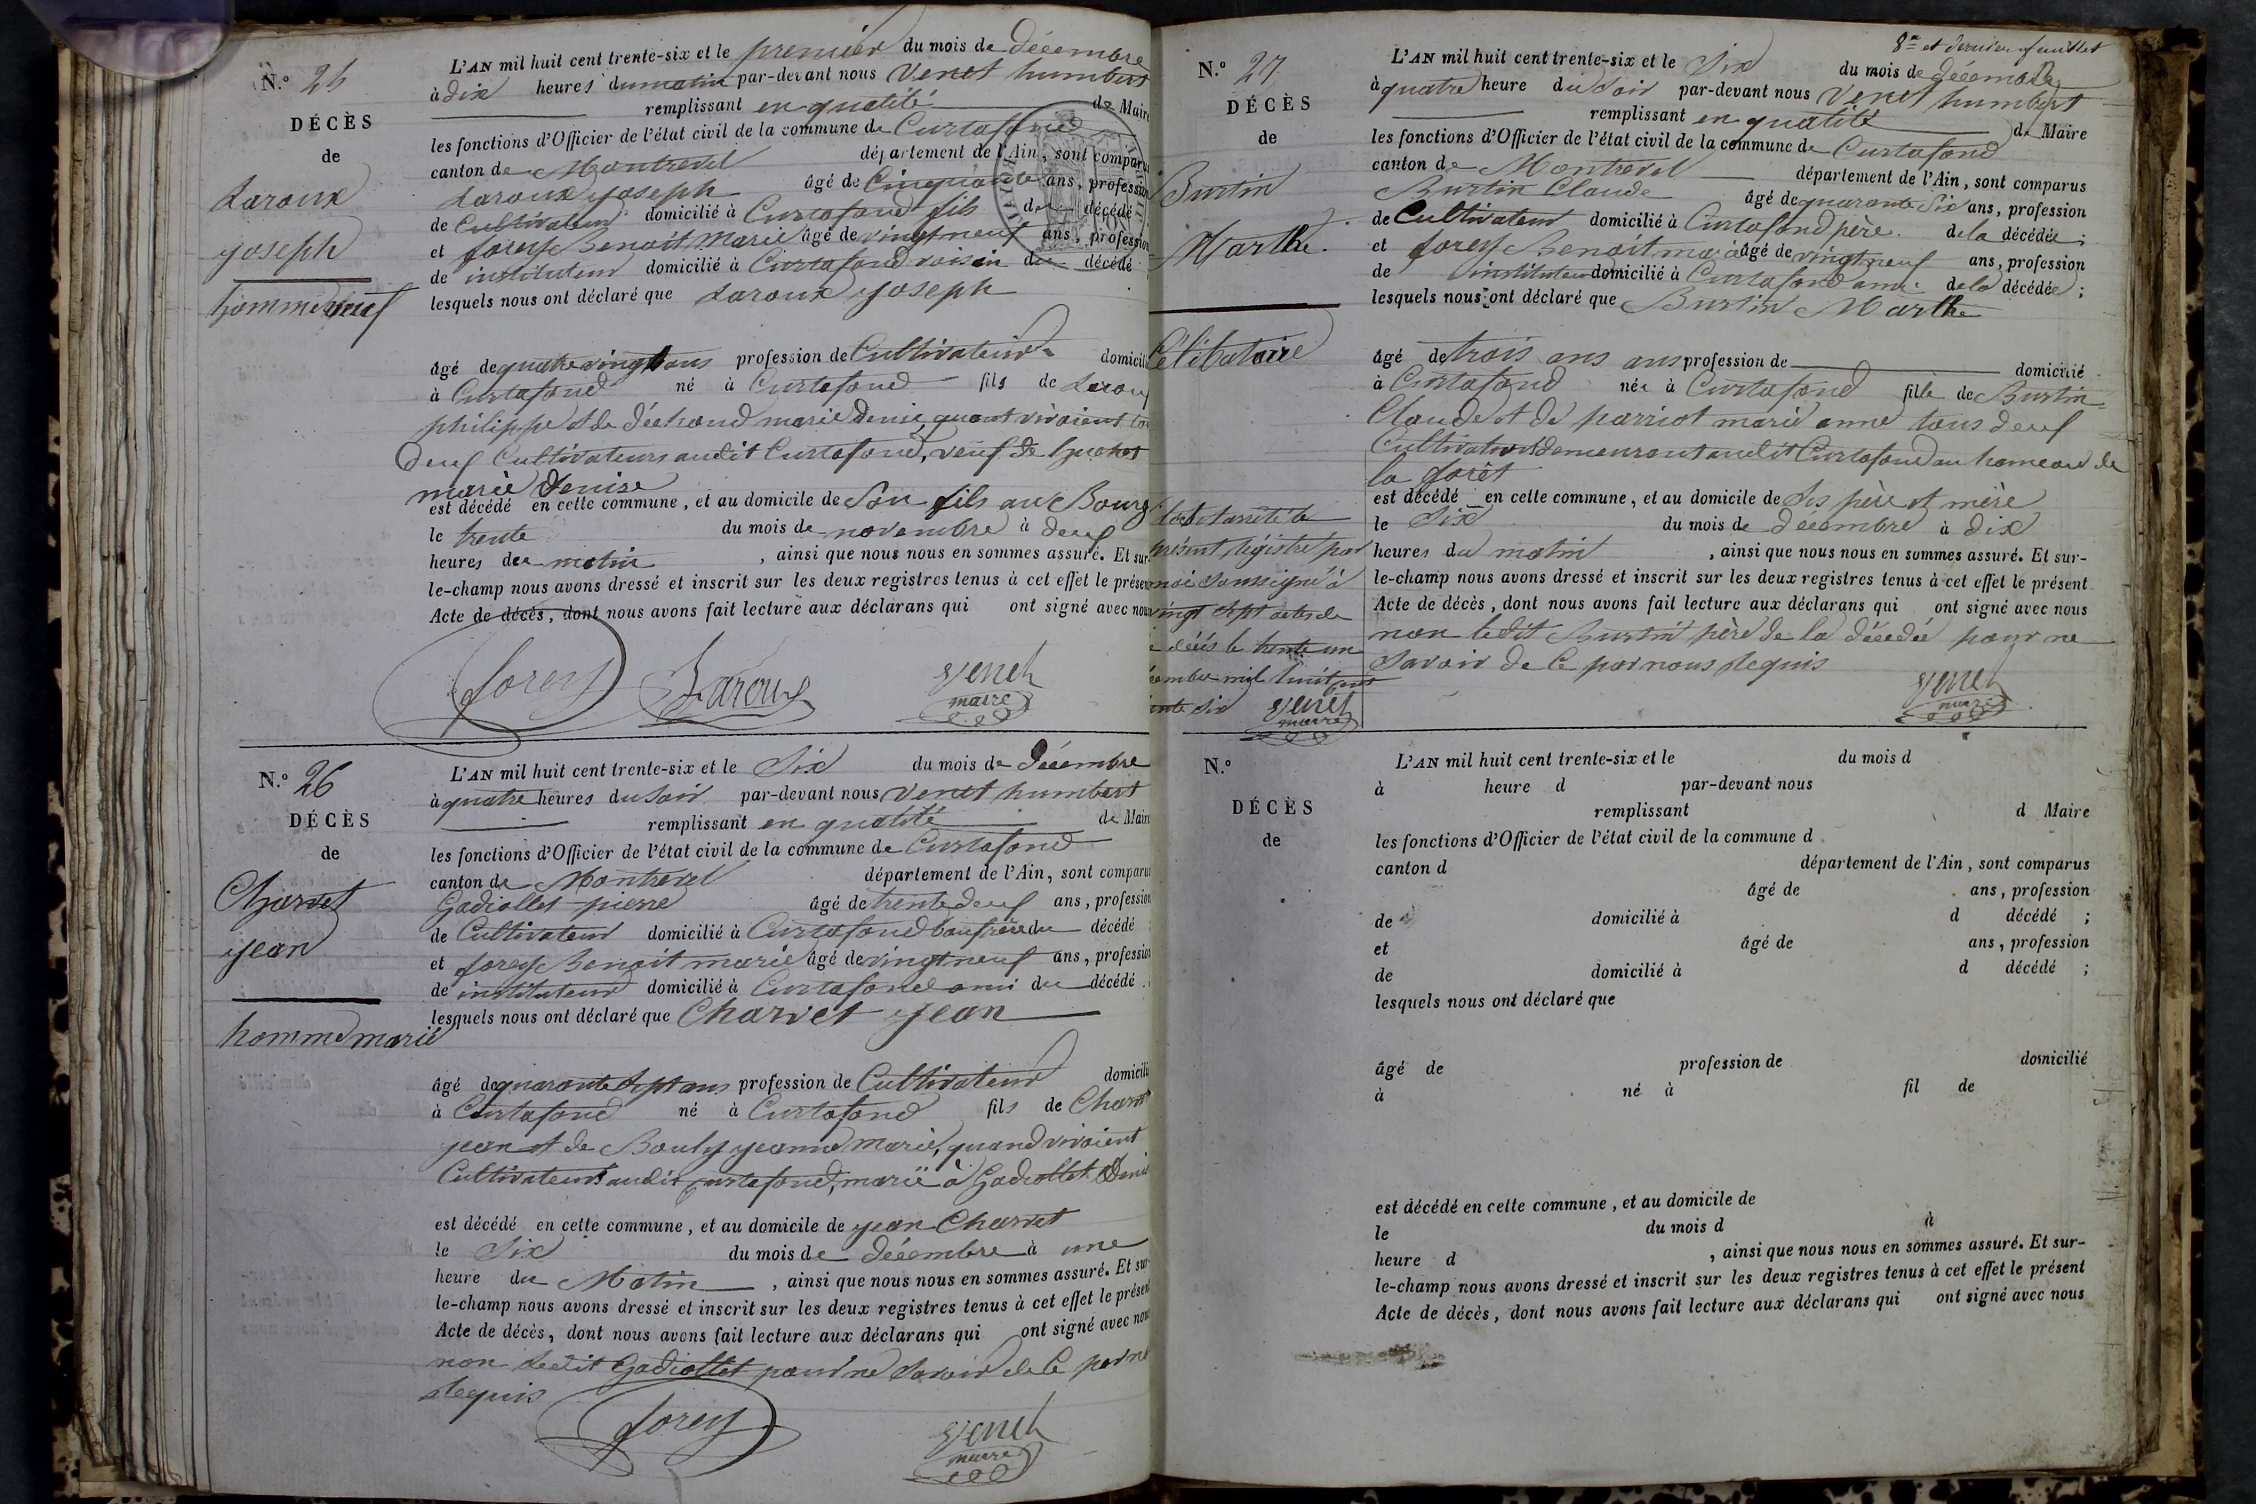 N.° 25
DÉCÈS
de
Laroux
joseph
homme veuf
L'AN mil huit cent trente-six et le premier du mois de décembre
à dix heures du matin par-devant nous Venet humbert
remplissant en qualité de Maire
les fonctions d'Officier de l'état civil de la commune de Curtafond
canton de Montrevel département de l'Ain, sont comparus
Laroux joseph âgé de Cinquante ans, profession
de Cultivateur domicilié à Curtafond fils du décédé
et forey Benoit Marie âgé de vingt neuf ans, profession
de instituteur domicilié à Curtafond voisin du décédé
lesquels nous ont déclaré que Laroux joseph
âgé de quatre vingt ans profession de Cultivateur domicilié
à Curtafond né à Curtafond fils de Laroux
philippe et de marie Denise, quant vivaient tous
deux Cultivateurs audit Curtafond, veuf de
marie Denise
est décédé en cette commune, et au domicile de Son fils au Bourg
le trente du mois de novembre à deux
heures du matin, ainsi que nous nous en sommes assuré. Et sur-
le-champ nous avons dressé et inscrit sur les deux registres tenus à cet effet le présent
Acte de décès, dont nous avons fait lecture aux déclarans qui ont signé avec nous
forey Laroux Venet
maire
N.° 26
DÉCÈS
de
Charvet
jean
homme marié
L'AN mil huit cent trente-six et le Six du mois de Décembre
à quatre heures du Soir par-devant nous Venet humbert
remplissant en qualité de Maire
les fonctions d'Officier de l'état civil de la commune de Curtafond
canton de Montrevel département de l'Ain, sont comparus
Gadiollet pierre âgé de trente deux ans, profession
de Cultivateur domicilié à Curtafond baufrère du décédé
et forey Benoit marie âgé de vingt neuf ans, profession
de instituteur domicilié à Curtafond ami du décédé
lesquels nous ont déclaré que Charvet jean
âgé de quarante Sept ans profession de Cultivateur domicilié
à Curtafond né à Curtafond fils de Charvet
jean et de Bouly jeanne Marie, quand vivaient
Cultivateurs audit curtafond, marié à Gadiollet Denise
est décédé en cette commune, et au domicile de jean Charvet
le Six du mois de décembre à une
heure du Matin, ainsi que nous nous en sommes assuré. Et sur-
le-champ nous avons dressé et inscrit sur les deux registres tenus à cet effet le présent
Acte de décès, dont nous avons fait lecture aux déclarans qui ont signé avec nous
non Ledit Gadiollet pour ne Savoir de Ce par nous
Requis
forey Venet
maire
8me et dernier feuillet
N.° 27
DÉCÈS
de
Burtin
Marthe
Célibataire
Clos et arrêté le
présent Régistre par
moi Soussigné à
vingt Sept actes de
décès le trente un
décembre mil huit cent
trente Six Venet
maire
L'AN mil huit cent trente-six et le Six du mois de décembre
à quatre heure du Soir par-devant nous Venet humbert
remplissant en qualité de Maire
les fonctions d'Officier de l'état civil de la commune de Curtafond
canton de Montrevel département de l'Ain, sont comparus
Burtin Claude âgé de quarante Six ans, profession
de Cultivateur domicilié à Curtafond père de la décédée;
et forey Benoit marie âgé de vingt neuf ans, profession
de instituteur domicilié à Curtafond ami de la décédée;
lesquels nous ont déclaré que Burtin Marthe
âgé de trois ans ans profession de domicilié
à Curtafond née à Curtafond fille de Burtin
Claude et de parriot marie anne tous deux
Cultivateurs demeurant audit Curtafond au hameau de
la forêt
est décédé en cette commune, et au domicile de Ses père et mère
le Six du mois de décembre à dix
heures du matin, ainsi que nous nous en sommes assuré. Et sur-
le-champ nous avons dressé et inscrit sur les deux registres tenus à cet effet le présent
Acte de décès, dont nous avons fait lecture aux déclarans qui ont signé avec nous
non ledit Burtin père de la décédée pour ne
Savoir de Ce par nous Requis
Venet
maire
N.°
DÉCÈS
de
L'AN mil huit cent trente-six et le du mois d
à heure d par-devant nous
remplissant d Maire
les fonctions d'Officier de l'état civil de la commune d
canton d département de l'Ain, sont comparus
âgé de ans, profession
de domicilié à d décédé ;
et âgé de ans, profession
de domicilié à d décédé ;
lesquels nous ont déclaré que
âgé de profession de domicilié
à né à fil de
est décédé en cette commune, et au domicile de
le du mois d à
heure d , ainsi que nous nous en sommes assuré. Et sur-
le-champ nous avons dressé et inscrit sur les deux registres tenus à cet effet le présent
Acte de décès, dont nous avons fait lecture aux déclarans qui ont signé avec nous